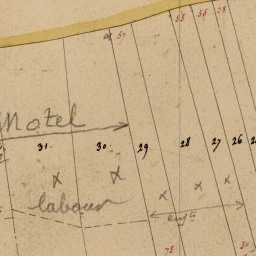 57 55 56 58
Motel
31 30 29 28 27 26
labour